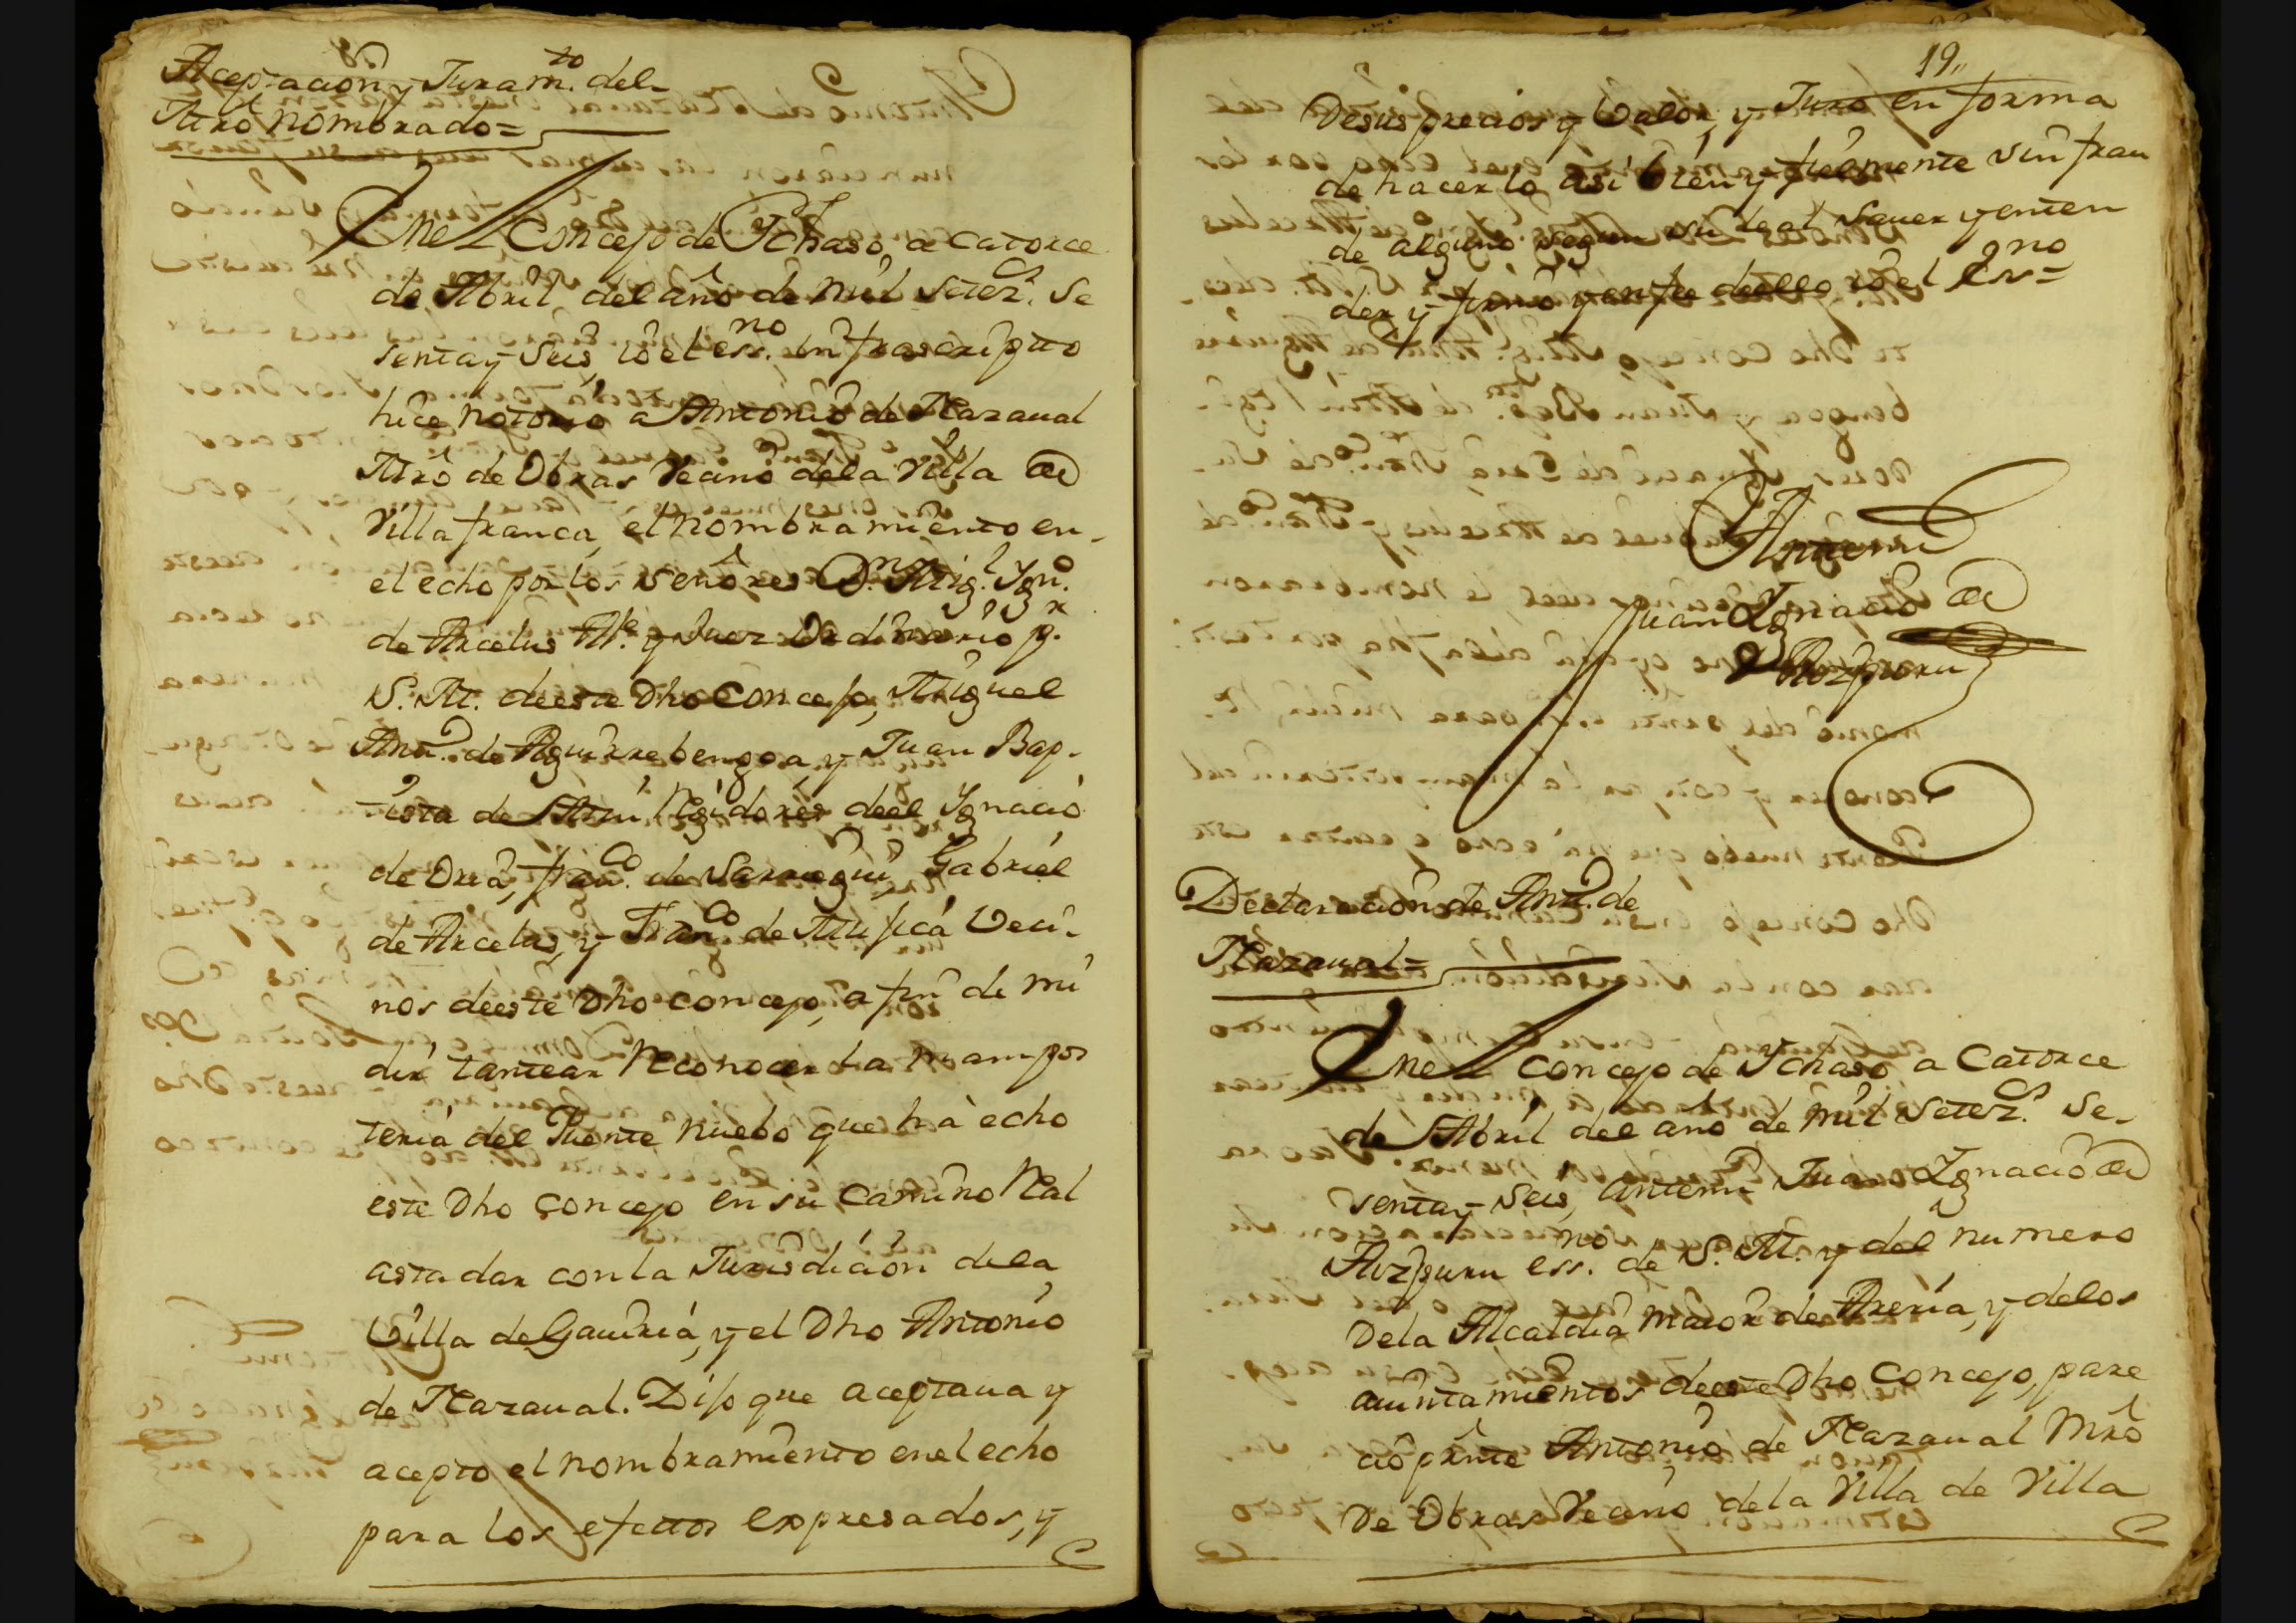 Aceptacion, y Juram.to del
Mrô nombrado =
En el Concejo de Ychaso, a catorce
de Abril, del año de mil setez.s se
senta y seis, io el ess.no infrascripto
hice notorio a Antonio de Mazaual
Mrô de Obras Vecino dela Villa de
Villafranca, el nombramiento en
el echo por los señores D.n Mig.l Ygn.o
de Arcelus Al.e y Juez Ordinario p.r
S. M. deeste dho Concejo, Miguel
Ant.o de Aguirrebengoa, y Juan Bap-
tista de Regidores deel Ygnacio
de Oria, fran.co de Sarriegui, Gabriel
de Arcelus, y Fran.co de Mujica Veci-
nos deeste dho concejo, a fin de mi
dir tantear Reconocer la mampos
teria del Puente nuebo que hà echo
este dho concejo en su Camino Real
astadar con la Jurisdicion dela
Villa de Gauiria, y el dho Antonio
de Mazaual. Dijo que aceptaua y
acepto el nombramiento en el echo
para los efectos expresados, y
19,,
De sus precios y Valor, y Juro en forma
de hacerlo asi bien y fielmente sin frau
de alguno segun su leal sauer y enten
der y firmò y enfee deello io el Ess.no =
Antemi
Juan Ygnacio de
Aizpuru
Declaracion de Ant.o de
Mazaual =
En el Concejo de Ychaso a Catorce
de Abril del año de mil setez.s se-
senta y seis, antemi Juan Ygnacio de
Aizpuru ess.no de S. M. y del numero
Dela Alcaldia maior de Areria, y delos
auintamientos deeste dho Concejo, pare
ciò prnte Antonio de Mazaual Mrô
De Obras Vecino dela Villa de Villa